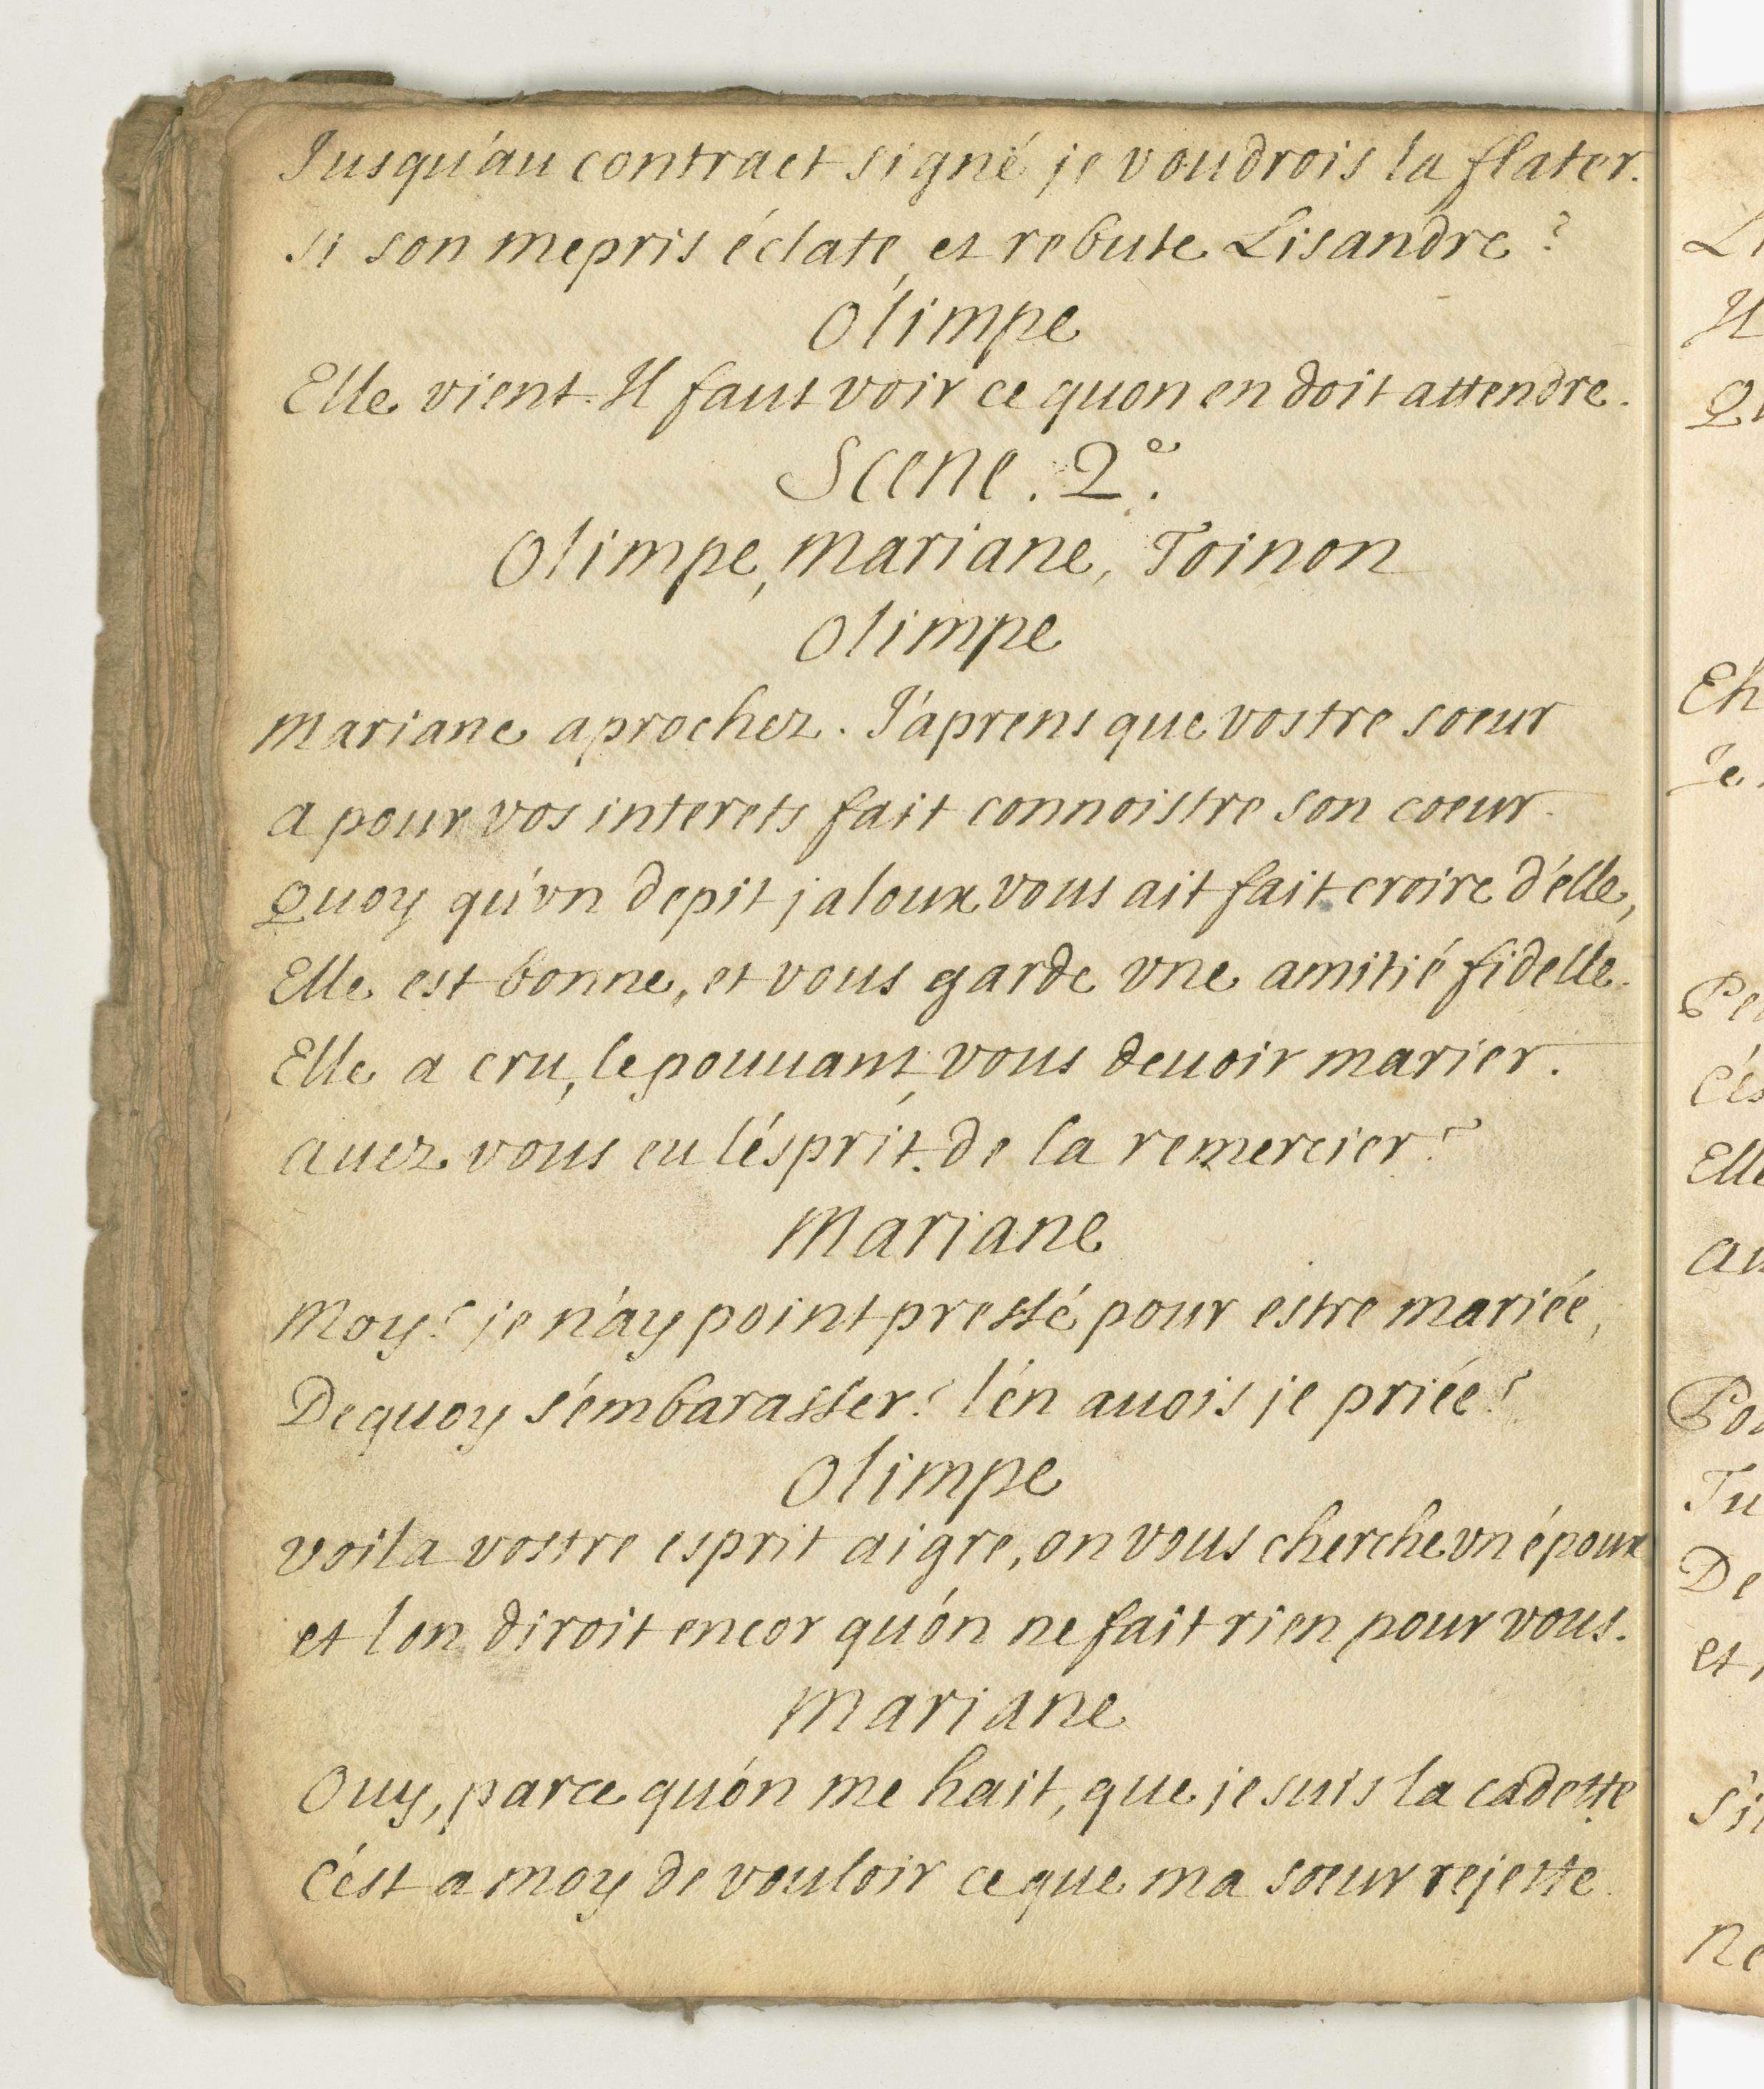 Jusqu'au contract signé je voudrois la flater.
si son mepris éclate, et rebute Lisandre?
Olimpe
Elle vient. Il faut voir ce quon en doit attendre.
Scene. 2e.
Olimpe, Mariane, Toinon
Olimpe
Mariane aprochez. J'aprens que vostre soeur
a pour vos interets fait connoistre son coeur.
Quoy qu'vn depit jaloux vous ait fait croire d'elle,
Elle est bonne, et vous garde vne amitié fidelle.
Elle a cru, le pouuant, vous deuoir marier.
auez vous eu l'ésprit de la remercier?
Mariane
Moy? je n'ay point pressé pour estre mariée,
De quoy s'embarasser? l'én auois je priée?
Olimpe
voila vostre esprit aigre, on vous cherche vn époux
et lon diroit encor qu'on ne fait rien pour vous.
Mariane
Ouy, parce qu'on me hait, que je suis la cadette
C'est a moy de vouloir ce que ma soeur rejette.
L
Il
Q
Eh
Je
Pe
C'es
Elle
au
Po
Tu
De
et
S'i
Ne